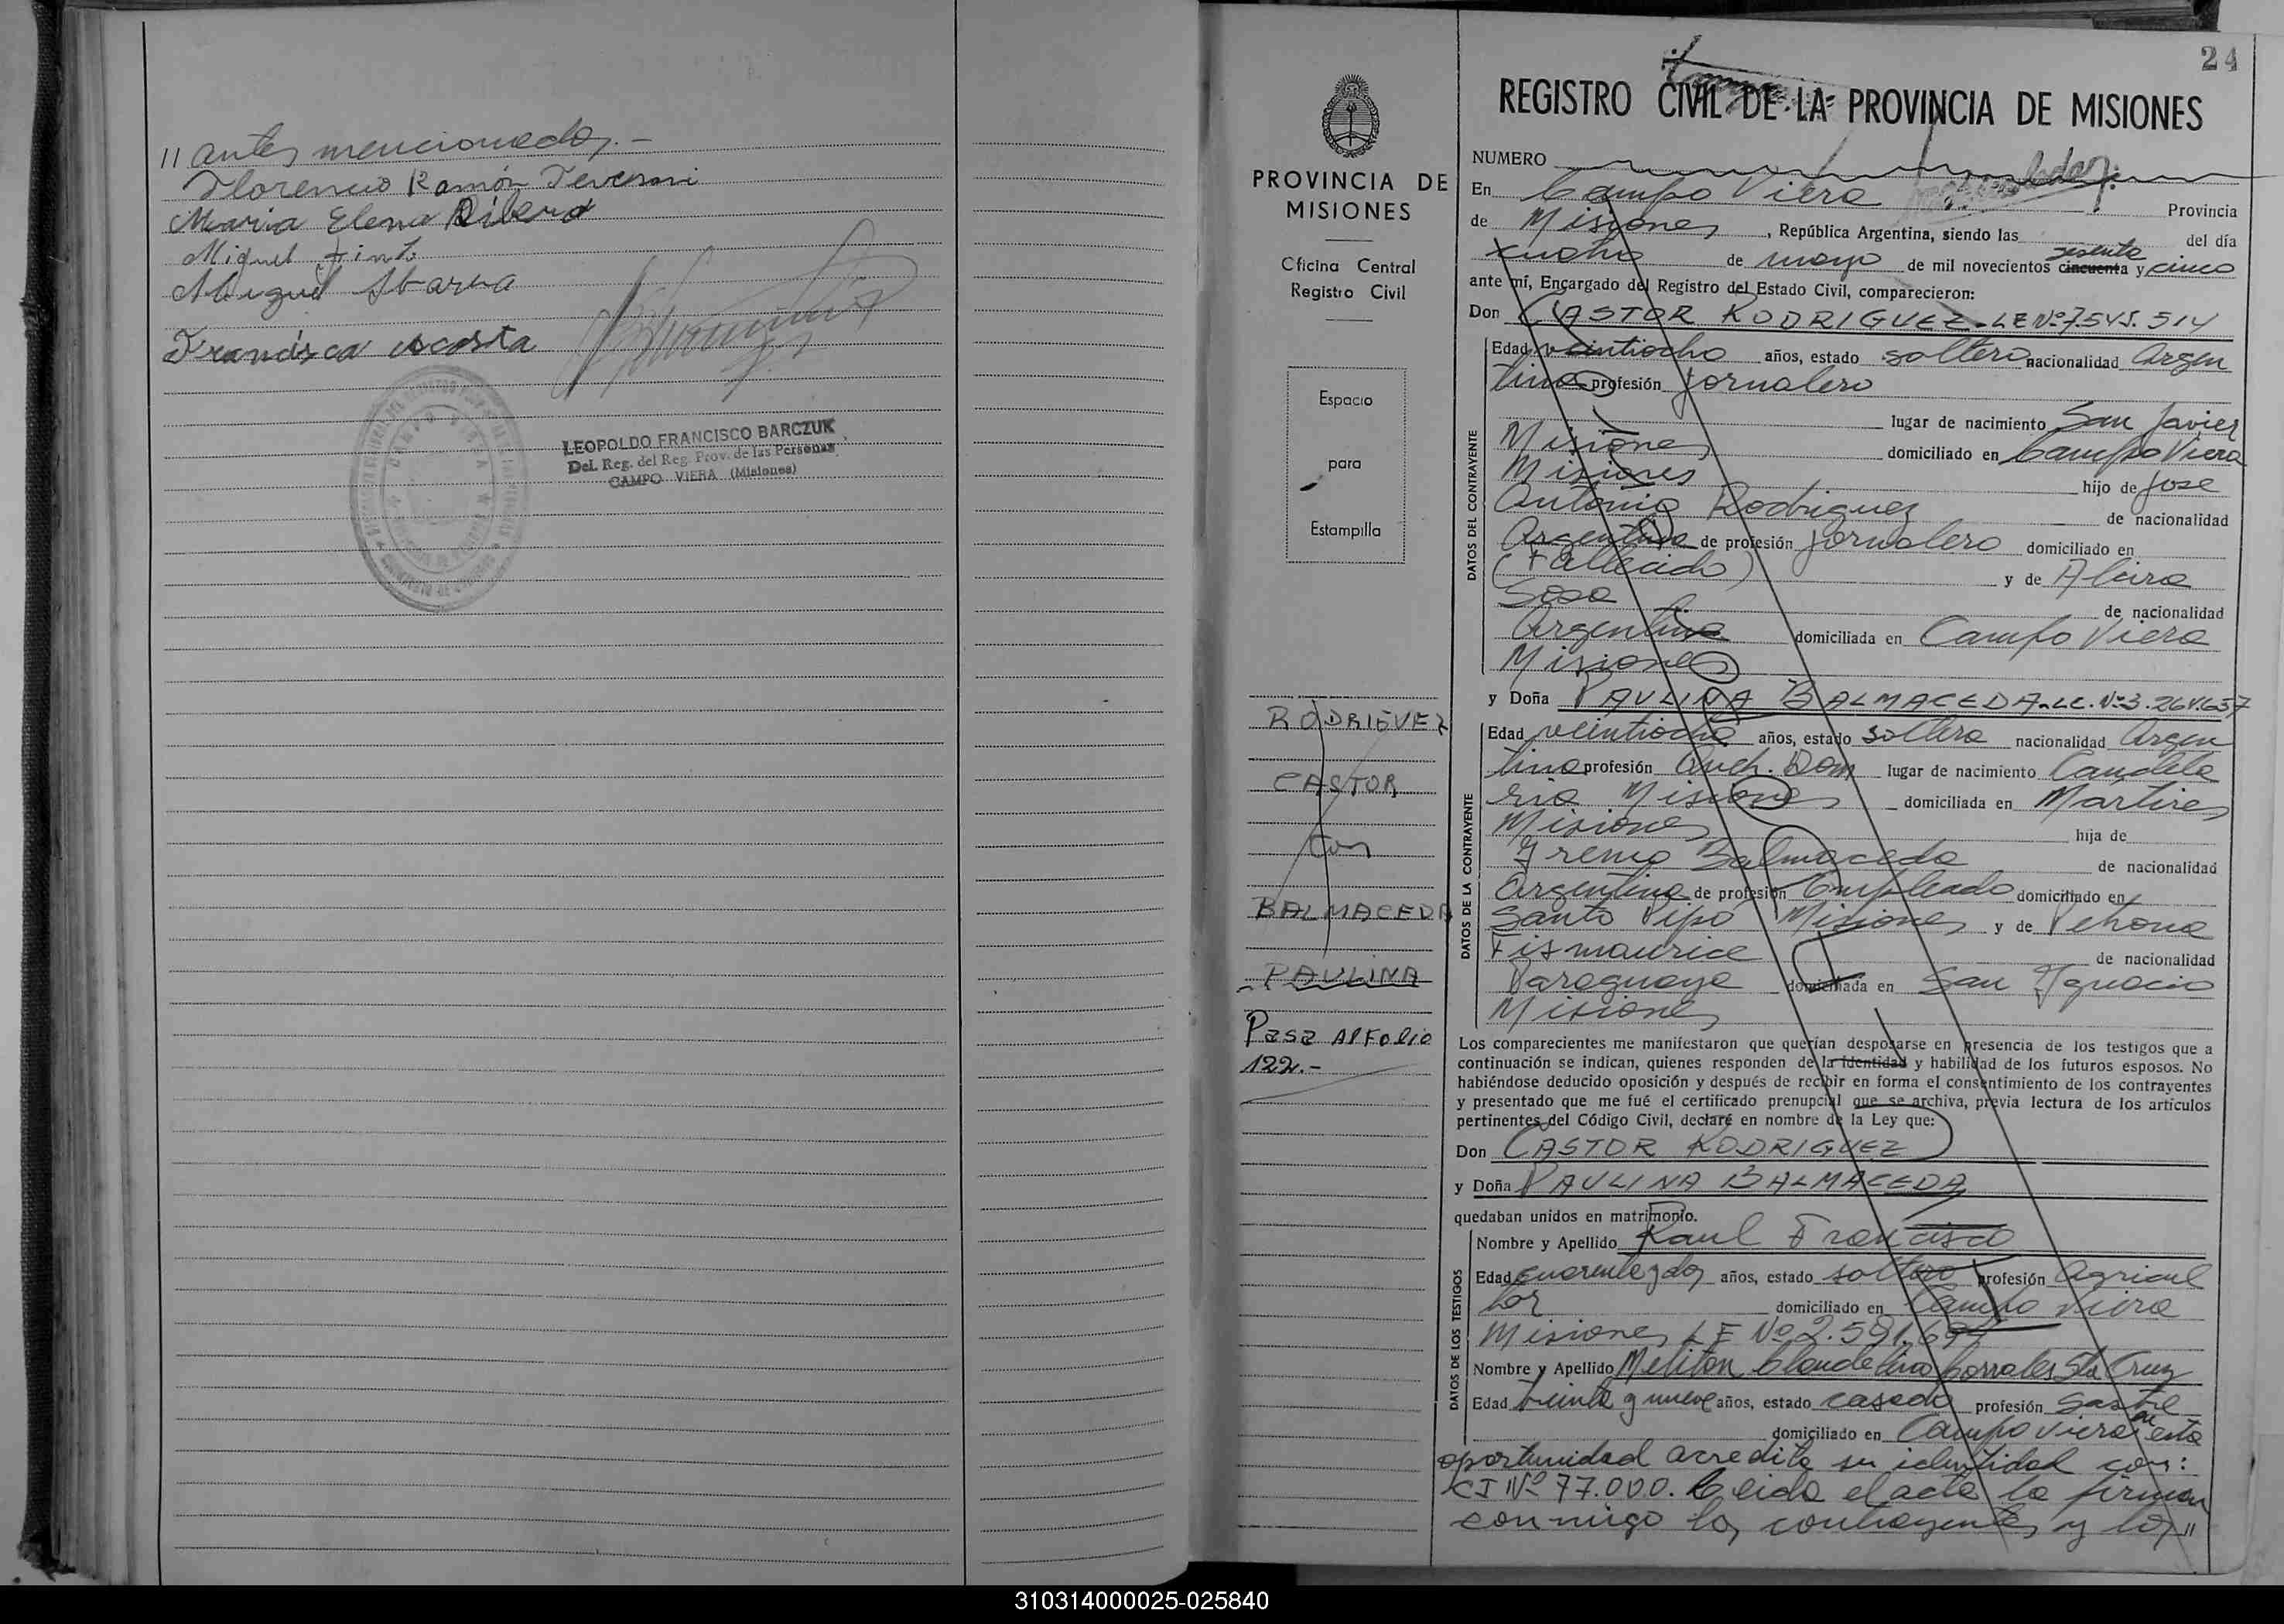 // antes mencionados.-
Florencio Ramón
Maria Elena Ribero
Miguel
Miguel Ibarra
Francisca Acosta
LEOPOLDO FRANCISCO BARCZUK
Del. Reg. del Reg. Prov. de las Personas
CAMPO VIERA (Misiones)
24
PROVINCIA DE
MISIONES
Oficina Central
Registro Civil
Espacio
para
Estampilla
RODRIGUEZ
CASTOR
Con
BALMACEDA
PAULINA
Pasa Al Folio
122.-
REGISTRO CIVIL DE LA PROVINCIA DE MISIONES
NUMERO
En Campo Viera Provincia
de Misiones, República Argentina, siendo las del día
cuatro de mayo de mil novecientos cincuenta sesenta y cinco
ante mí, Encargado del Registro del Estado Civil, comparecieron:
Don CASTOR RODRIGUEZ.- LE Nº 7.545.514
DATOS DEL CONTRAYENTE
Edad veintiocho años, estado soltero nacionalidad Argen
tina profesión Jornalero
lugar de nacimiento San Javier
Misiones domiciliado en Campo Viera
Misiones hijo de Jose
Antonio Rodriguez de nacionalidad
Argentina de profesión Jornalero domiciliado en
(Fallecido) y de Alcira
Sosa de nacionalidad
Argentina domiciliada en Campo Viera
Misiones
y Doña PAULINA BALMACEDA.- LC. Nº 3.264.637
DATOS DE LA CONTRAYENTE
Edad veintiocho años, estado soltera nacionalidad Argen
tina profesión Queh. Dom lugar de nacimiento Candela
ria Misiones domiciliada en Martires
Misiones hija de
Irenio Balmaceda de nacionalidad
Argentina de profesión Empleado domiciliado en
Santo Pipo Misiones y de Petrona
Fismaurice de nacionalidad
Paraguaya domiciliada en San Ignacio
Misiones
Los comparecientes me manifestaron que querían desposarse en presencia de los testigos que a
continuación se indican, quienes responden de la identidad y habilidad de los futuros esposos. No
habiéndose deducido oposición y después de recibir en forma el consentimiento de los contrayentes
y presentado que me fué el certificado prenupcial que se archiva, previa lectura de los artículos
pertinentes del Código Civil, declaré en nombre de la Ley que:
Don CASTOR RODRIGUEZ
y Doña PAULINA BALMACEDA
quedaban unidos en matrimonio.
DATOS DE LOS TESTIGOS
Nombre y Apellido Raul Francisco
Edad cuarenta y dos años, estado soltero profesión Agricul
tor domiciliado en Campo Viera
Misiones LE Nº 2.591.694
Nombre y Apellido Meliton Claudelino Corrales Sta Cruz
Edad treinta y nueve años, estado casado profesión Sastre
domiciliado en Campo Viera en esta
oportunidad acredita su identidad con:
CI Nº 77.000. Leida el acta la firman
conmigo los contrayentes y los //
310314000025-025840